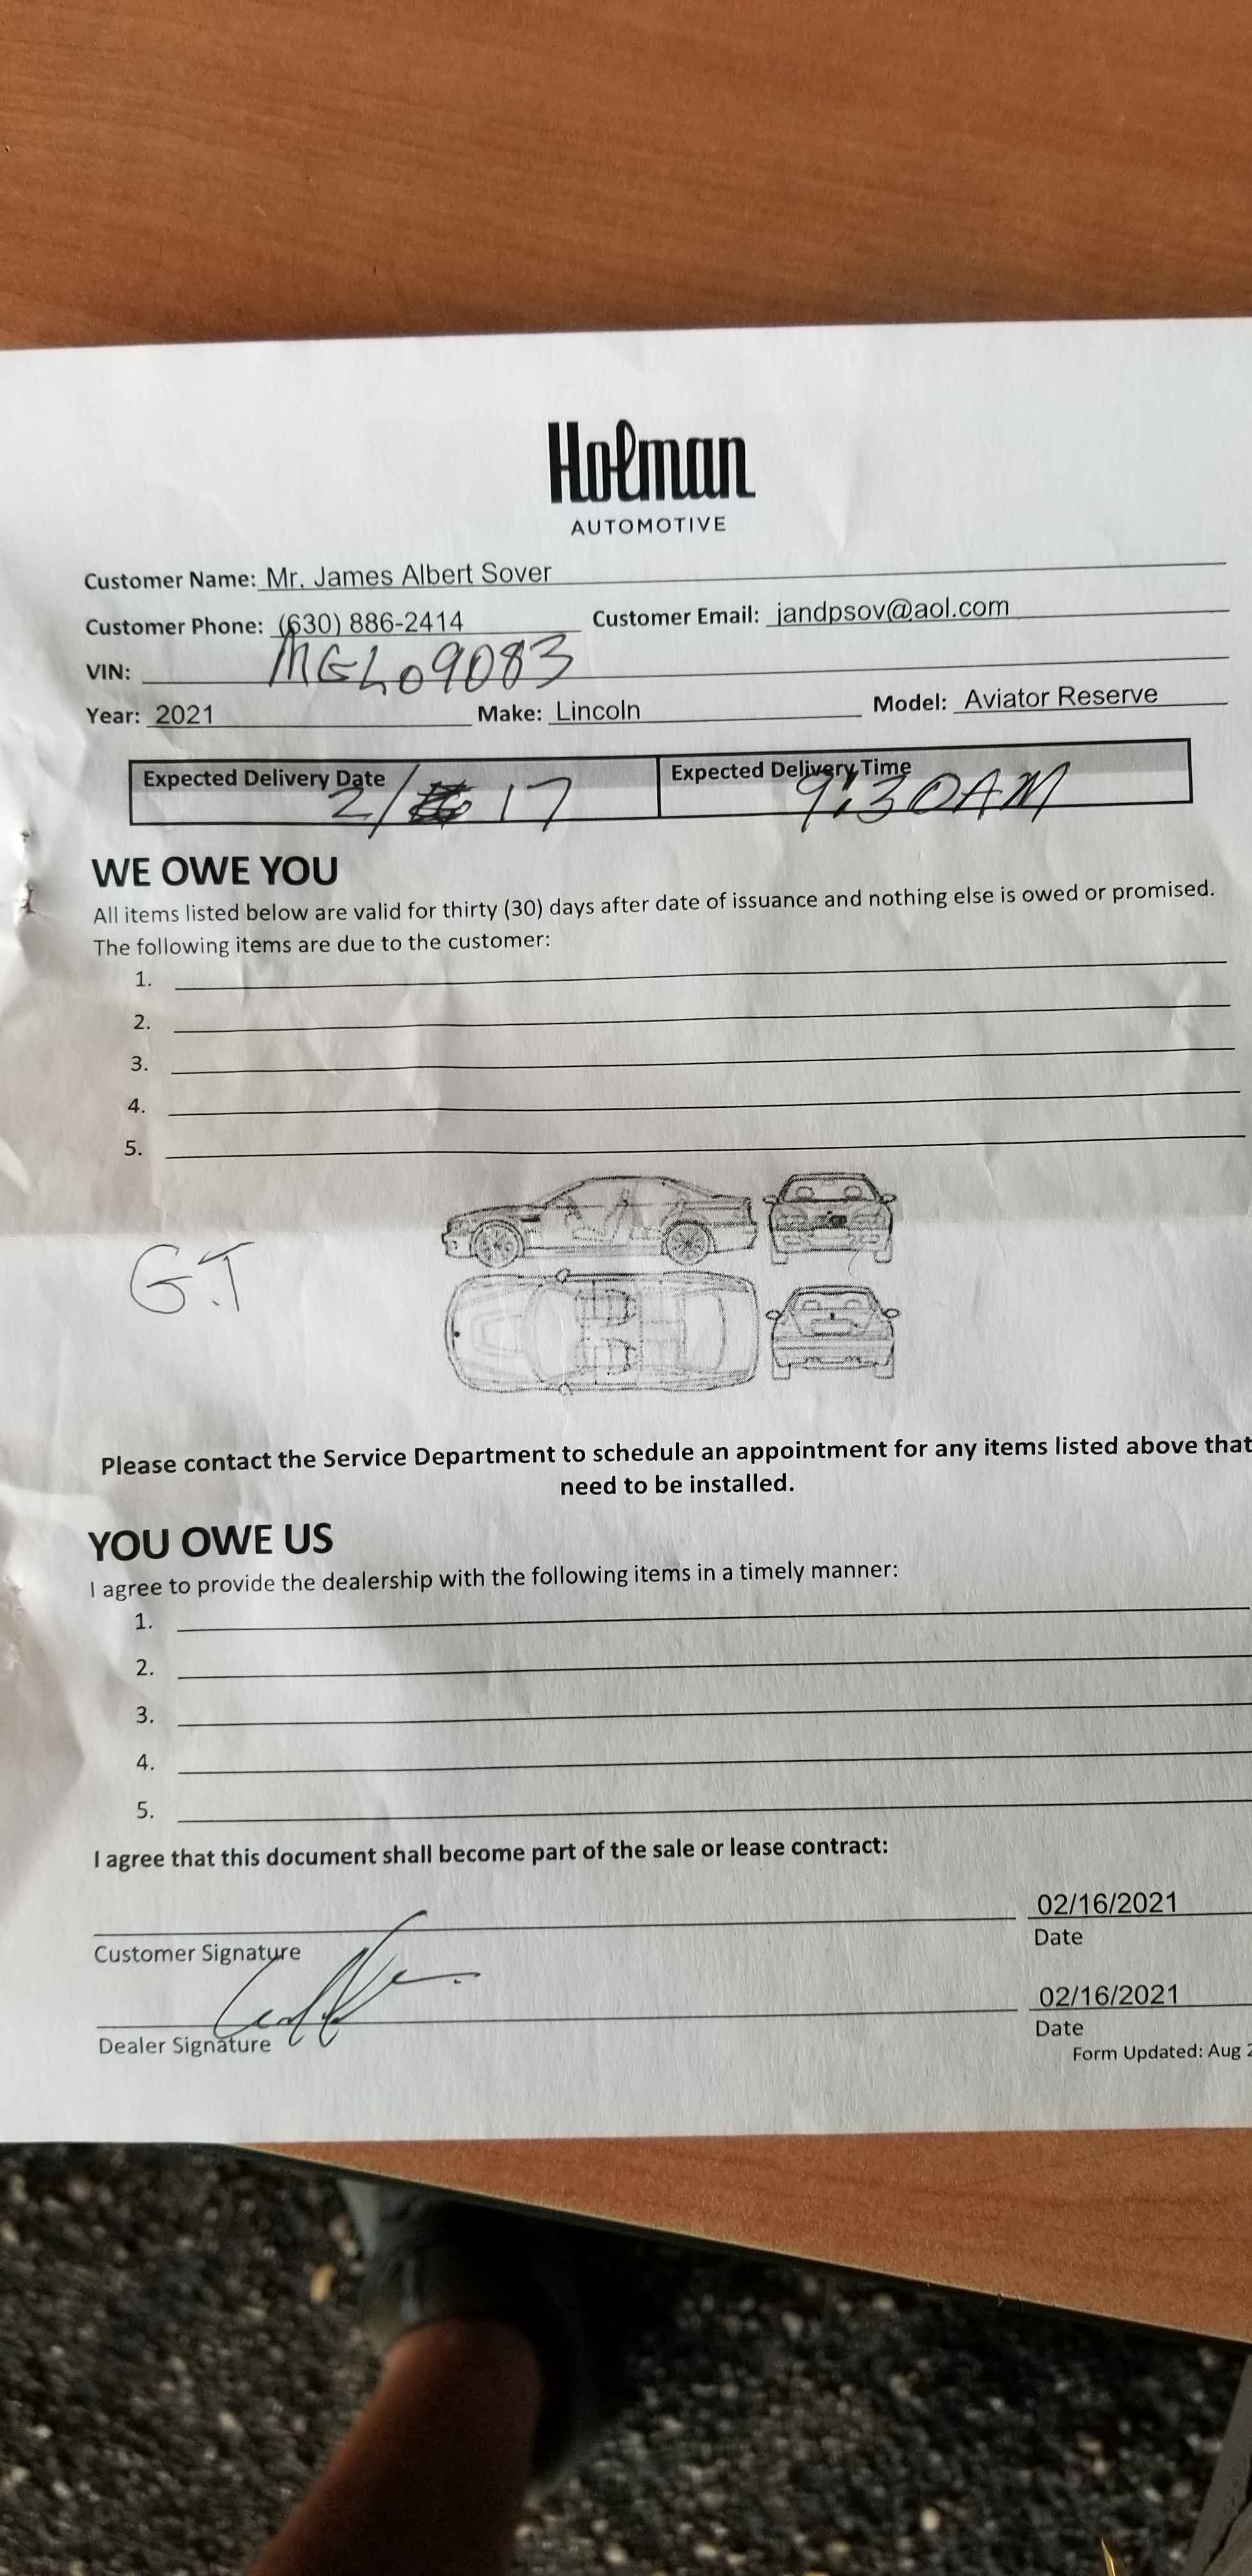 Holman
AUTOMOTIVE
Customer Name: Mr. James Albert Sover
Customer Phone: (630) 886-2414 Customer Email: jandpsov@aol.com
VIN: MGL09083
Year: 2021 Make: Lincoln Model: Aviator Reserve
Expected Delivery Date 2/17 Expected Delivery Time 9:30AM
WE OWE YOU
All items listed below are valid for thirty (30) days after date of issuance and nothing else is owed or promised.
The following items are due to the customer:
1.
2.
3.
4.
5.
G.T
Please contact the Service Department to schedule an appointment for any items listed above that
need to be installed.
YOU OWE US
I agree to provide the dealership with the following items in a timely manner:
1.
2.
3.
4.
5.
I agree that this document shall become part of the sale or lease contract:
02/16/2021
Customer Signature Date
02/16/2021
Dealer Signature Date
Form Updated: Aug